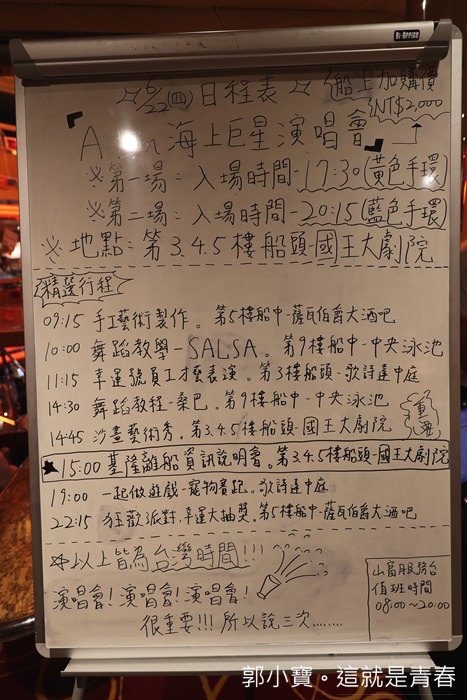 Bi-Office
☆6/22(四)日程表☆ 船上加購價
NT$2,000
「A 海上巨星演唱會」
※第一場:入場時間-17:30(黃色手環)
※第二場:入場時間-20:15(藍色手環)
※地點:第3.4.5樓船頭-國王大劇院
精選行程
09:15 手工藝術製作。第5樓船中-薩瓦伯爵大酒吧
10:00 舞蹈教學-SALSA。第9樓船中-中央泳池
11:15 幸運號員工才藝表演。第3樓船頭-歌詩達中庭
14:30 舞蹈教程-桑巴。第9樓船中-中央泳池
14:45 沙畫藝術秀。第3.4.5樓船頭-國王大劇院
重要
★15:00 基隆離船資訊說明會。第3.4.5樓船頭-國王大劇院
19:00 一起做遊戲-寵物賽跑。歌詩達中庭
22:15 狂歡派對.幸運大抽獎。第5樓船中-薩瓦伯爵大酒吧
☆以上皆為台灣時間!!!
演唱會!演唱會!演唱會!
很重要!!!所以說三次........
山富服務台
值班時間
08:00~20:00
郭小寶。這就是青春